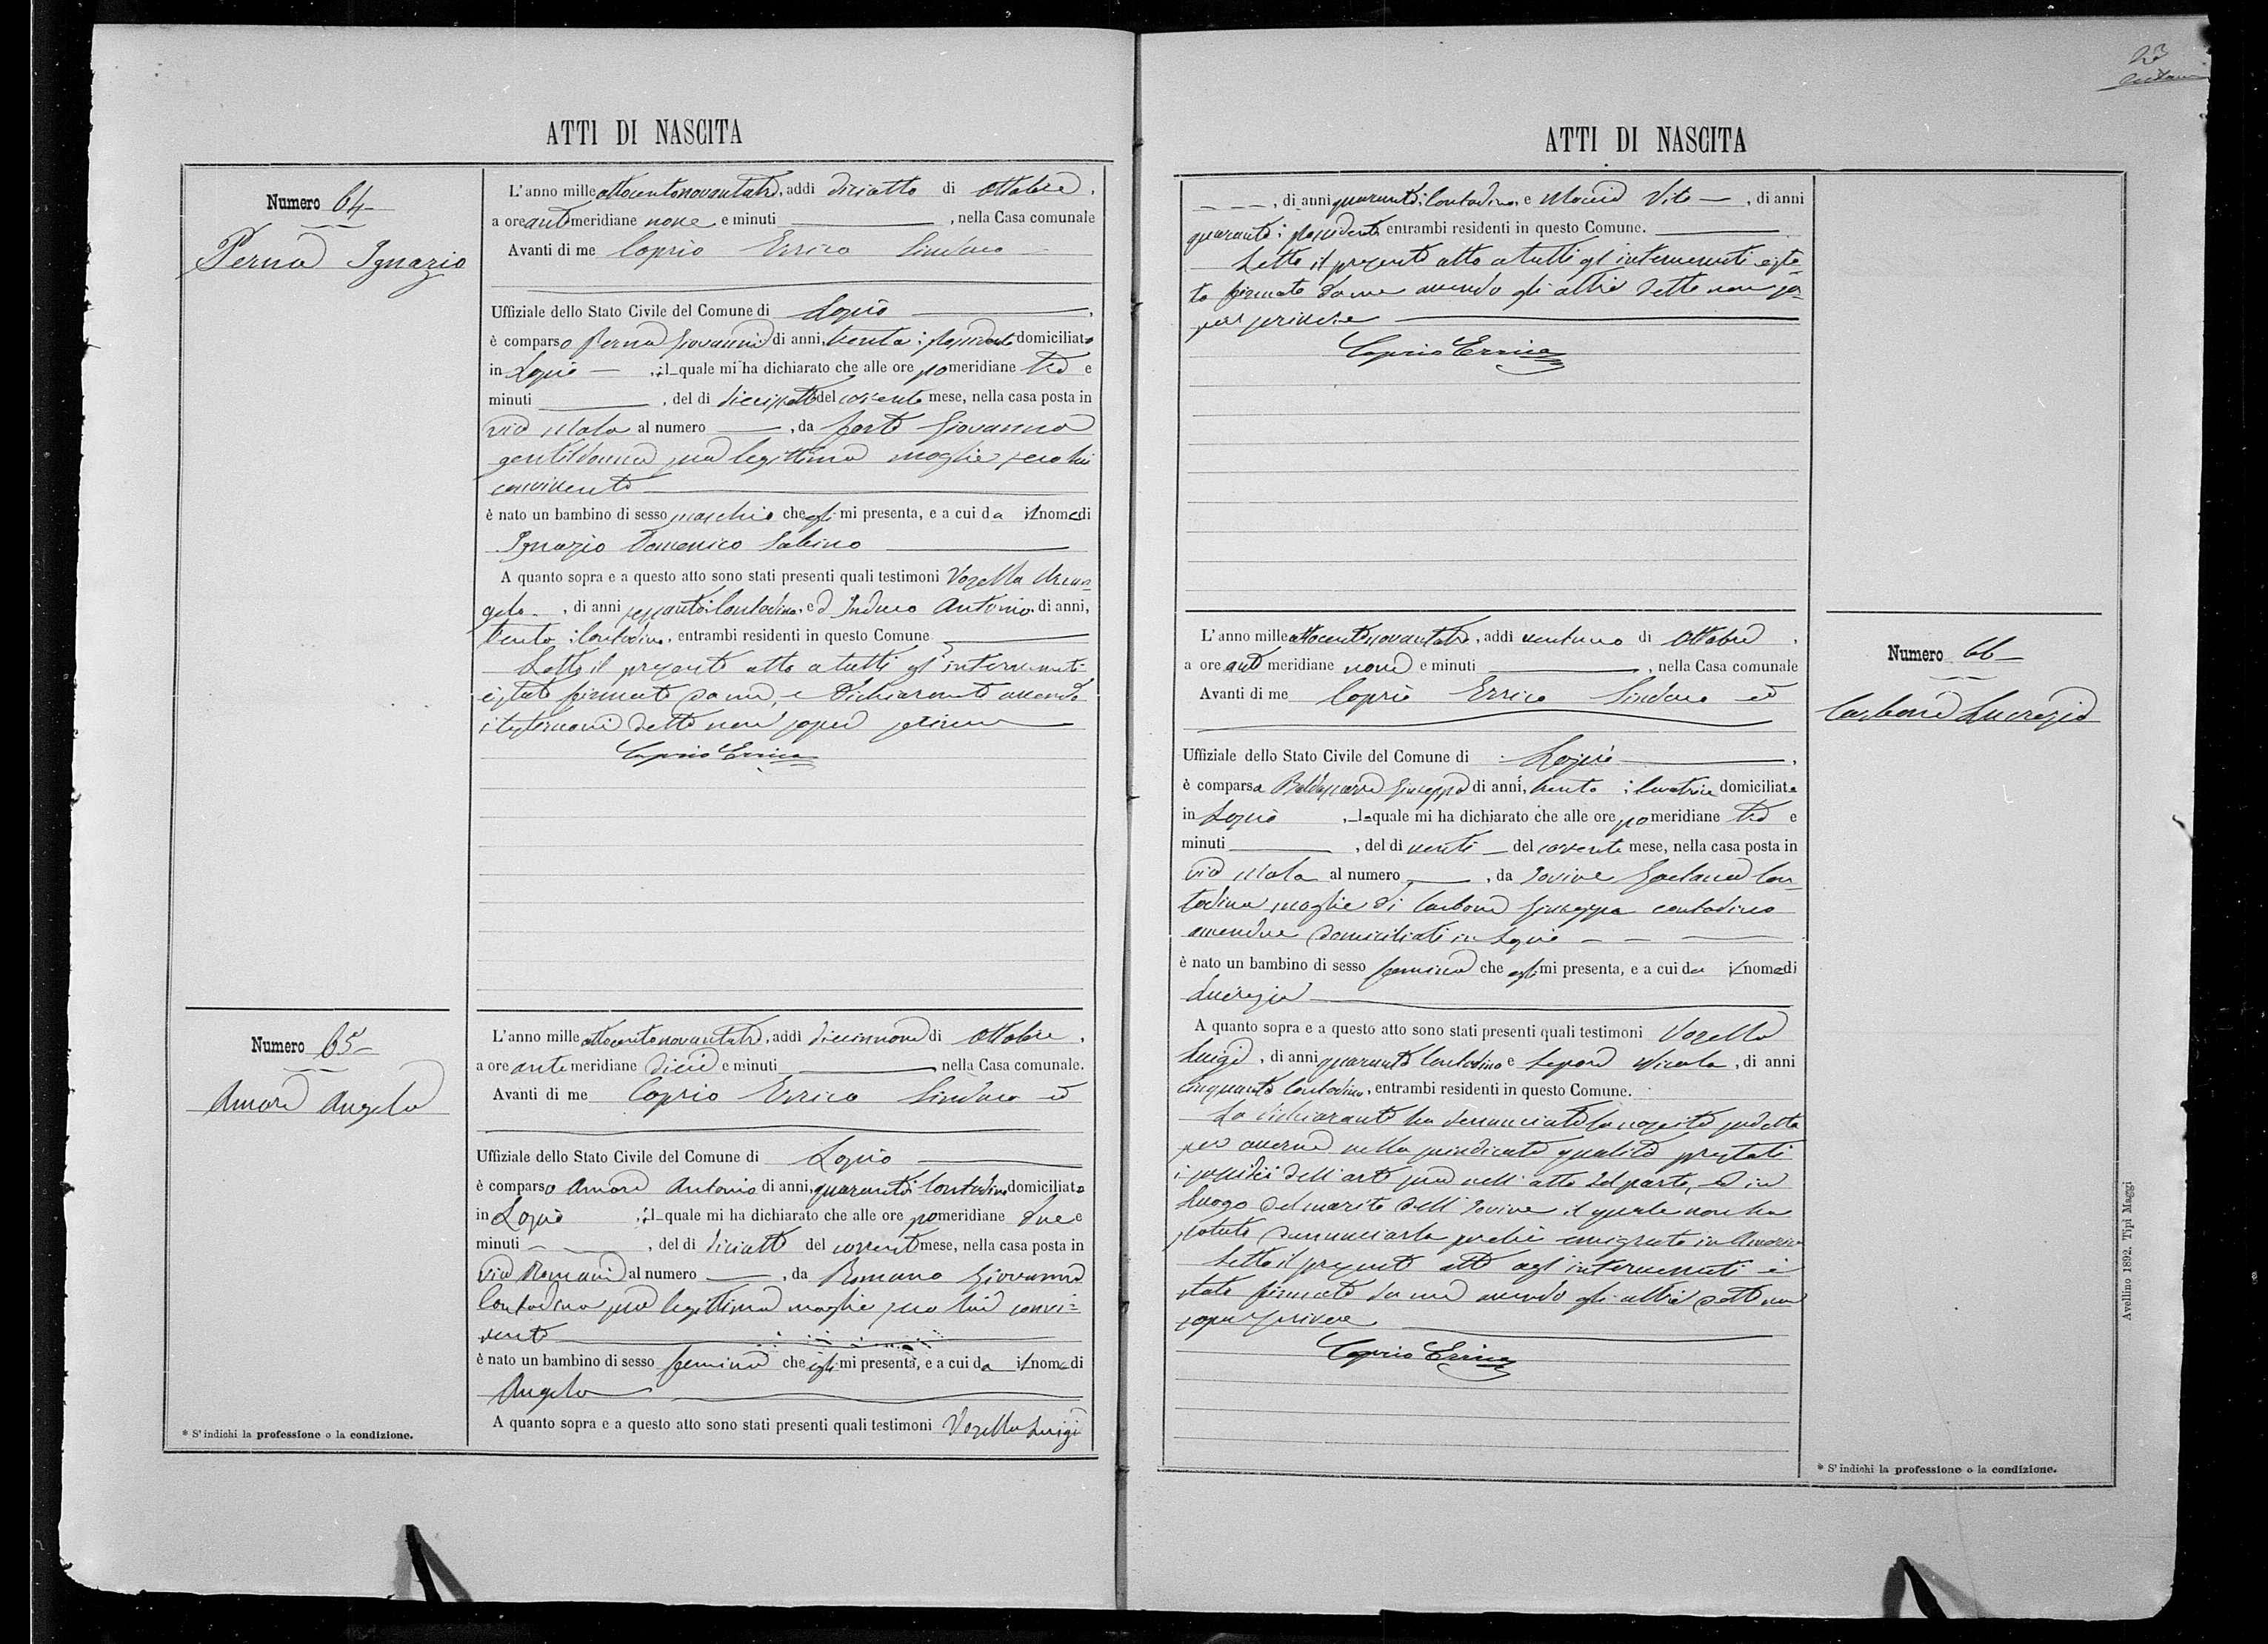 23
ATTI DI NASCITA
Numero 64
Perna Ignazio
L'anno mille ottocentonovantatre, addì diciotto di Ottobre,
a ore ante meridiane nove e minuti —, nella Casa comunale
Avanti di me Caprio Errico Sindaco
Uffiziale dello Stato Civile del Comune di Lapio —,
è comparso Perna Giovanni di anni, trenta; possidente domiciliato
in Lapio —, il quale mi ha dichiarato che alle ore pomeridiane tre e
minuti —, del dì diecissette del corrente mese, nella casa posta in
via Mala al numero —, da Forte Giovanna
gentildonna sua legittima moglie seco lui
convivente —
è nato un bambino di sesso maschio che egli mi presenta, e a cui da i nomi di
Ignazio Domenico Sabino —
A quanto sopra e a questo atto sono stati presenti quali testimoni Vozella Arcan-
gelo, di anni sessanta; Contadino, ed Induco Antonio di anni,
trenta; Contadino, entrambi residenti in questo Comune —
Letto il presente atto a tutti gl'intervenuti
è stato firmato da me, e dichiarante avendo
i testimoni detto non saper scrivere
Caprio Errico
Numero 65
Amore Angela
L'anno mille ottocentonovantatre, addì diecinnove di Ottobre,
a ore ante meridiane dieci e minuti — nella Casa comunale.
Avanti di me Caprio Errico Sindaco ed
Uffiziale dello Stato Civile del Comune di Lapio —
è comparso Amore Antonio di anni, quaranta; Contadino domiciliato
in Lapio, il quale mi ha dichiarato che alle ore pomeridiane due e
minuti —, del dì diciotto del corrente mese, nella casa posta in
via Romani al numero —, da Romano Giovanna
Contadina sua legittima moglie seco lui convi-
vente —
è nato un bambino di sesso femina che egli mi presenta, e a cui da il nome di
Angela —
A quanto sopra e a questo atto sono stati presenti quali testimoni Vozella Luigi
* S'indichi la professione o la condizione.
ATTI DI NASCITA
— — —, di anni quaranta; Contadino, e Vito —, di anni
quaranta; possidente entrambi residenti in questo Comune. —
Letto il presente atto a tutti gl'intervenuti è sta-
to firmato da me avendo gli altri detto non sa-
per scrivere —
Caprio Errico
Numero 66
Carbone Lucrezia
L'anno mille ottocentonovantatre, addì ventuno di Ottobre,
a ore ante meridiane nove e minuti —, nella Casa comunale
Avanti di me Caprio Errico Sindaco ed
Uffiziale dello Stato Civile del Comune di Lapio —,
è comparsa Baldassarre Giuseppa di anni, trenta; levatrice domiciliata
in Lapio, la quale mi ha dichiarato che alle ore pomeridiane tre e
minuti —, del dì venti — del corrente mese, nella casa posta in
via Mala al numero —, da Iovine Gaetana Con-
tadina moglie di Carbone Giuseppe contadino
amendue domiciliati in Lapio — — —
è nato un bambino di sesso femina che egli mi presenta, e a cui da il nome di
Lucrezia —
A quanto sopra e a questo atto sono stati presenti quali testimoni Vozella
Luigi, di anni quaranta Contadino e Lepore Nicola, di anni
cinquanta Contadino, entrambi residenti in questo Comune.
La dichiarante ha denunciato la nascita suddetta
per averne nella suindicata qualità prestati
i soffici dell'arte sua nell'atto del parto, ed in
luogo del marito dell'Iovine il quale non ha
potuto denunciarla perchè emigrato in America
Letto il presente atto agl'intervenuti è
stato firmato da me avendo gli altri detto non
saper scrivere —
Caprio Errico
* S'indichi la professione o la condizione.
Avellino 1892. Tipi Maggi